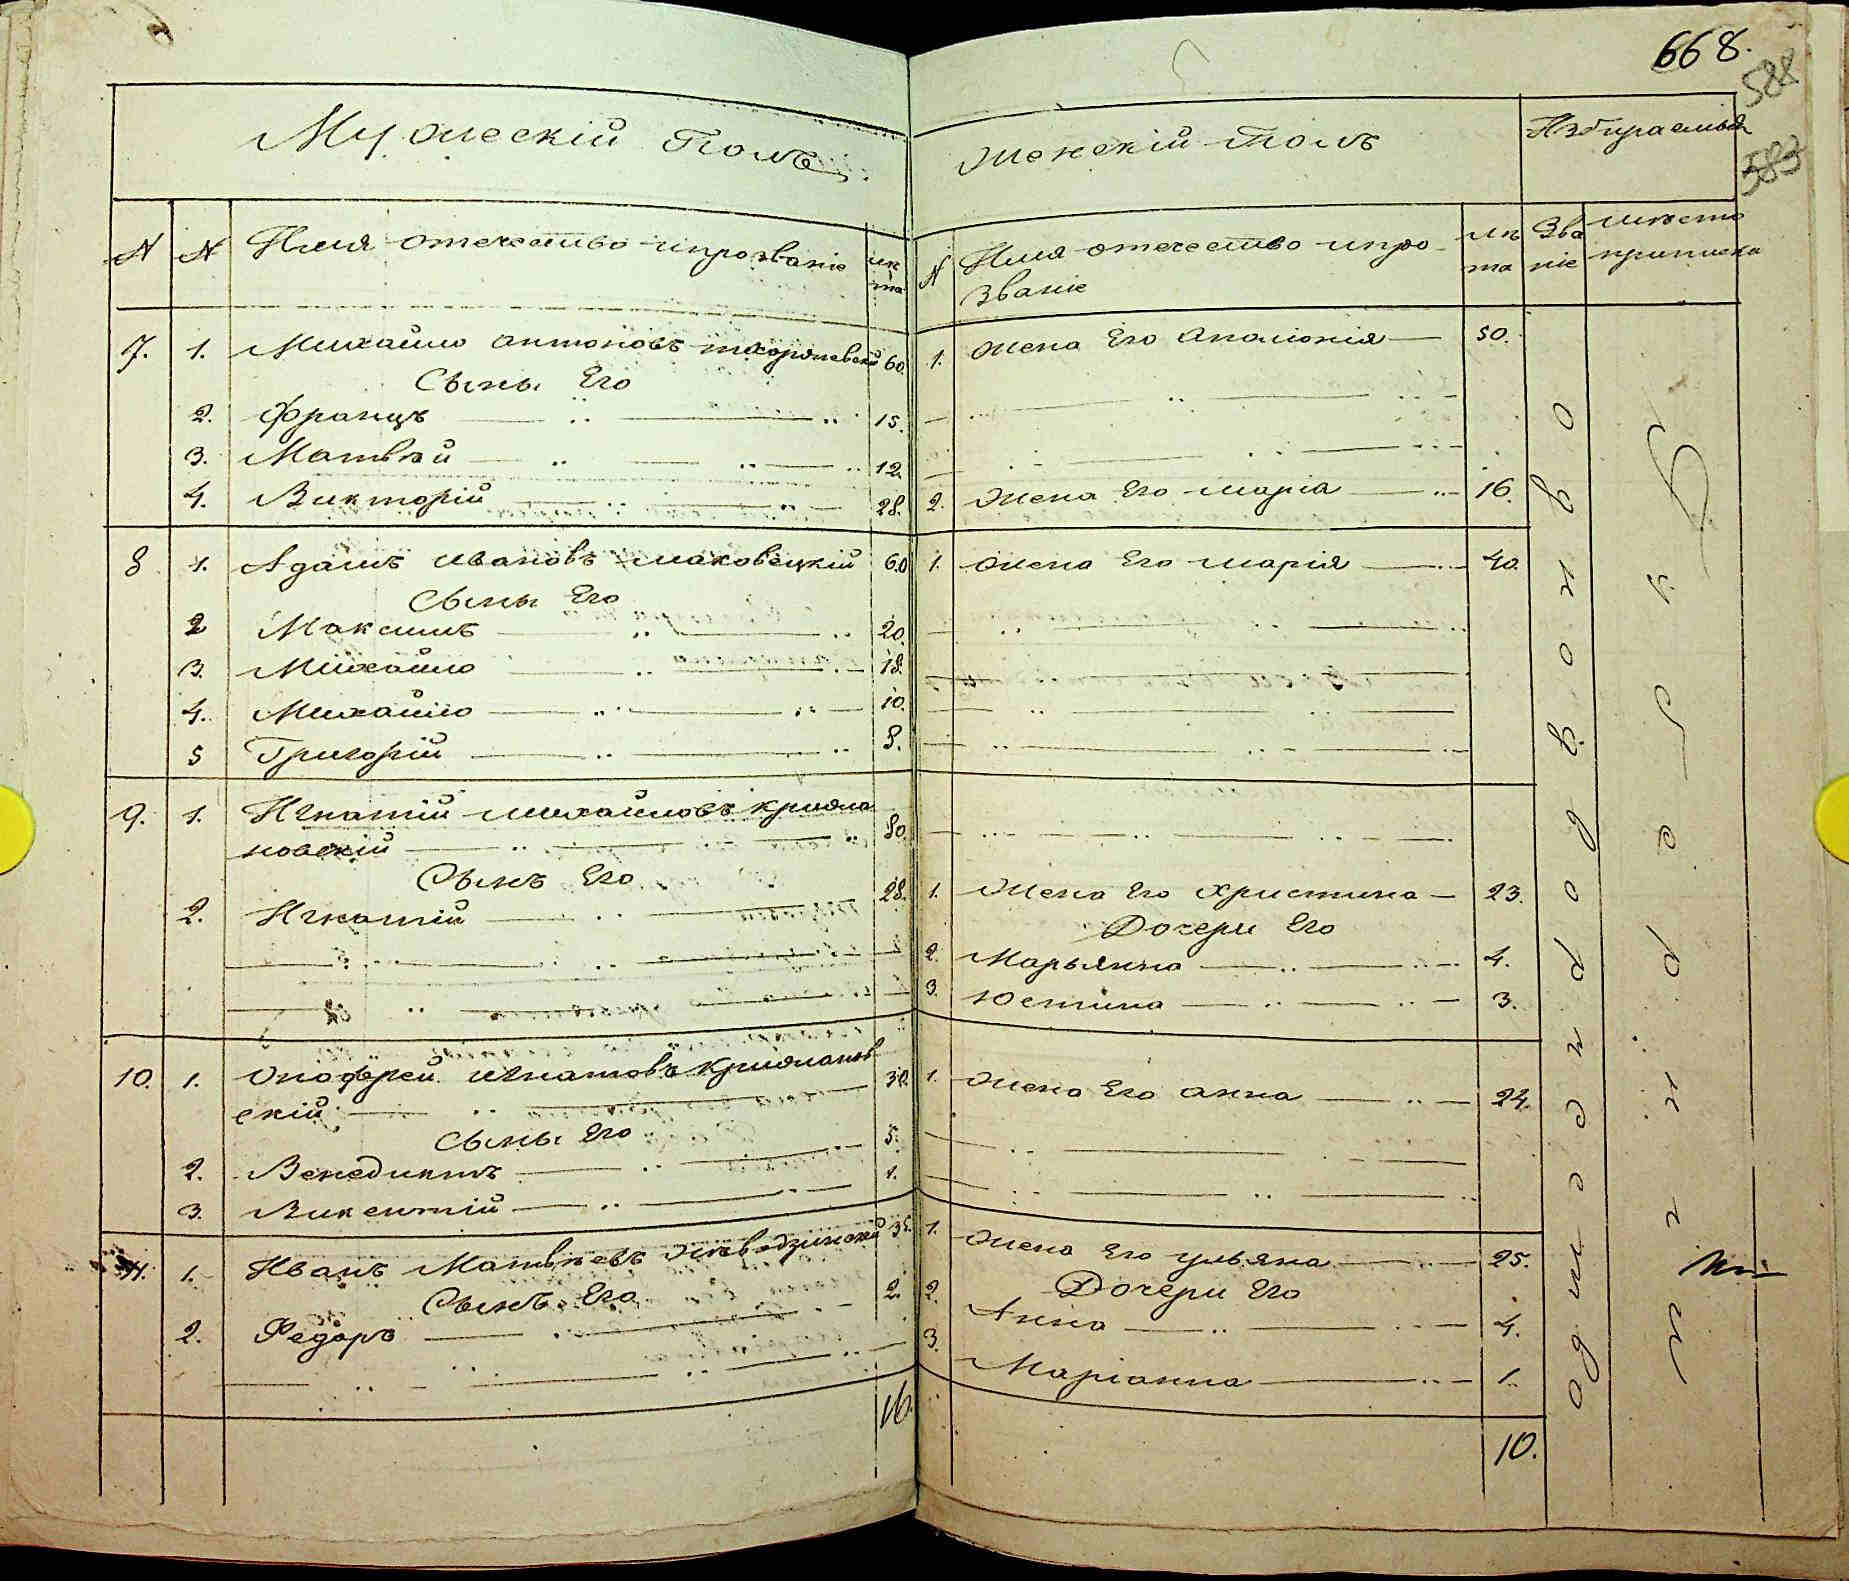 668.
588
583
Мужескій Полъ
Женскій Полъ
Избираемыя
N N Имя отечество ипрозваніе лѣта
N Имя отечество ипрозваніе лѣта
Званіе
мѣсто приписки
7. 1. Михайло Антоновъ 60. 1. Жена Его Аполіонія 50.
Сыны Его
2. Францъ 15.
3. Матвѣй 12.
4. Викторій 28. 2. Жена Его Марія 16.
8 1. Адамъ Ивановъ Маковецкій 60 1. Жена Его Марія 40.
Сыны Его
2 Максимъ 20.
3. Михайло 18.
4. Михайло 10.
5 Григорій 8.
9. 1. Игнатій Михайловъ Крижановскій 80.
Сынъ Его
2. Игнатій 28. 1. Жена Его Христина 23.
Дочери Его
2. Марьянна 4.
3. Юстина 3.
10. 1. Онофрей Игнатовъ Крижановскій 30. 1. Жена Его Анна 24.
Сыны Его
2. Венедиктъ 5.
3. Викентій 1.
11. 1. Иванъ Матвѣевъ 35. 1. Жена Его Ульяна 25.
Сынъ Его
Дочери Его
2. Федоръ 2. 2. Анна 4.
3. Маріанна 1.
16.
10.
однодворчество